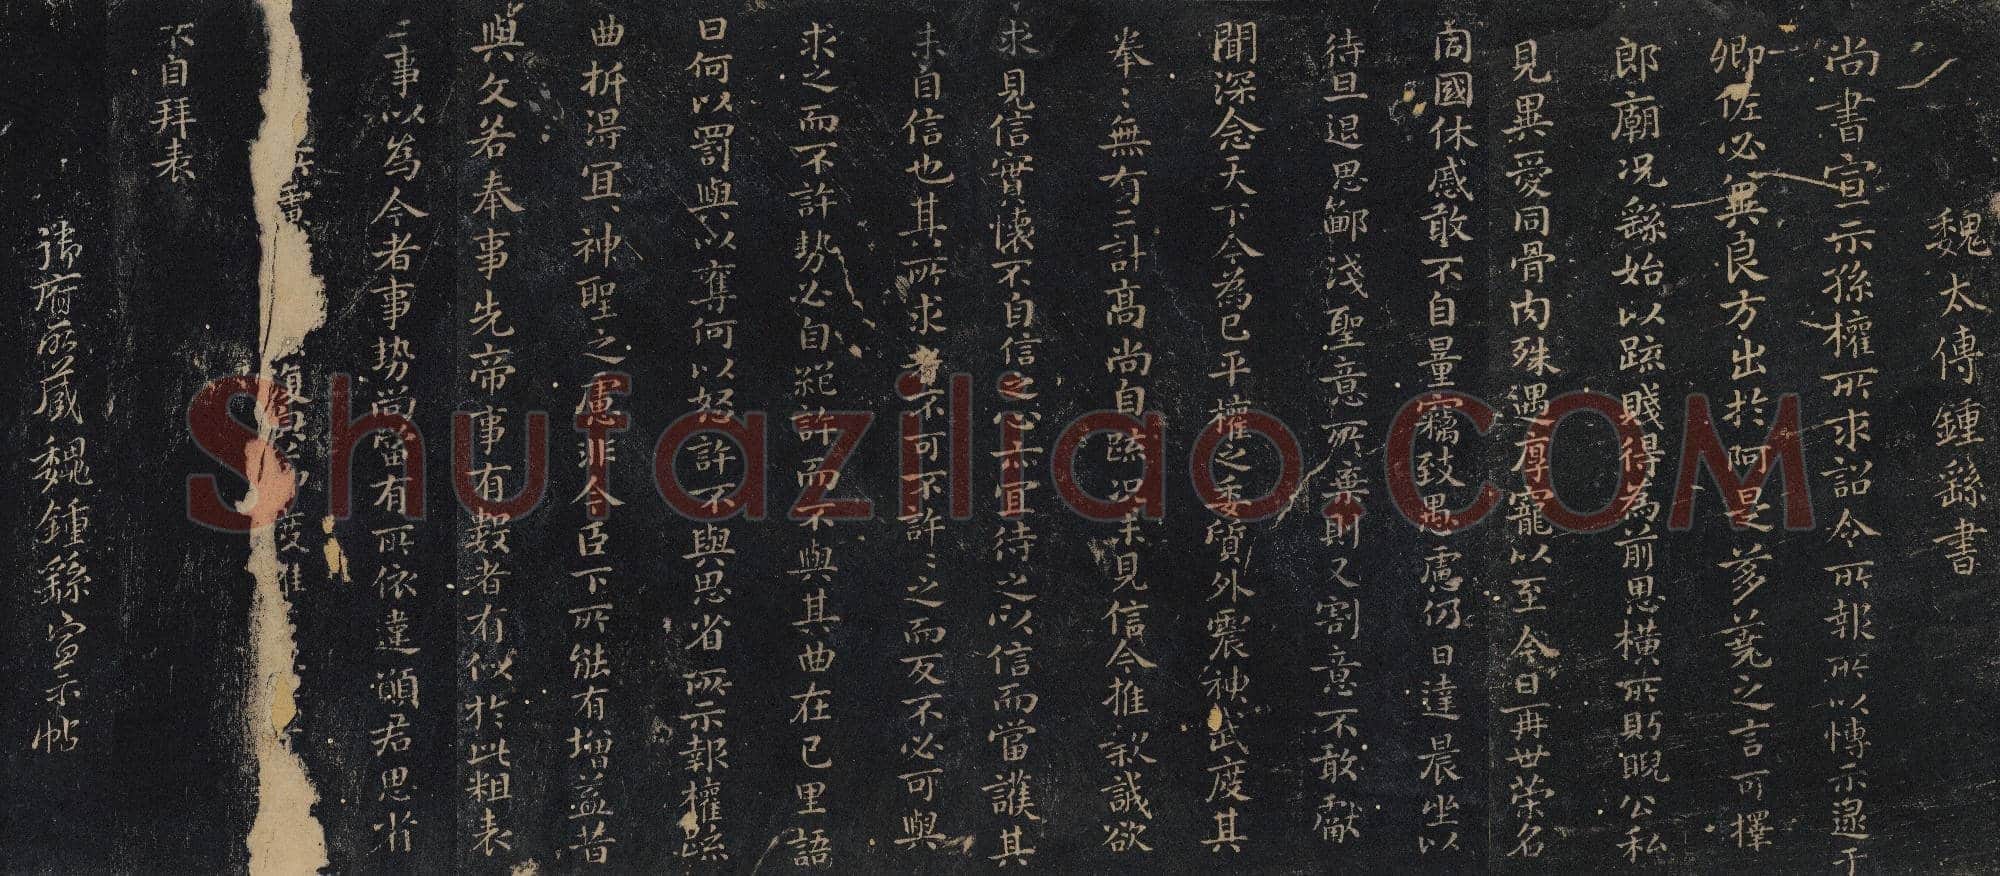 魏太傅鍾繇書
尚書宣示孫權所求詔令所報所以博示逮于
卿佐必冀良方出於阿是芻蕘之言可擇
郎廟況繇始以疏賤得為前恩橫所盻睨公私
見異愛同骨肉殊遇厚寵以至今日再世榮名
同國休慼敢不自量竊致愚慮仍日達晨坐以
待旦退思鄙淺聖意所棄則又割意不敢獻
聞深念天下今為已平權之委質外震神武度其
拳〻無有二計高尚自疏況未見信今推款誠欲
求見信實懷不自信之心亦宜待之以信而當護其
未自信也其所求者不可不許〻之而反不必可與
求之而不許勢必自絕許而不與其曲在己里語
曰何以罰與以奪何以怒許不與思省所示報權疏
曲折得宜宜神聖之慮非今臣下所能有增益昔
與文若奉事先帝事有數者有似於此粗表
二事以為今者事勢尚當有所依違願君思省
不自拜表
所藏魏鍾繇宣示帖
Shufaziliao.COM